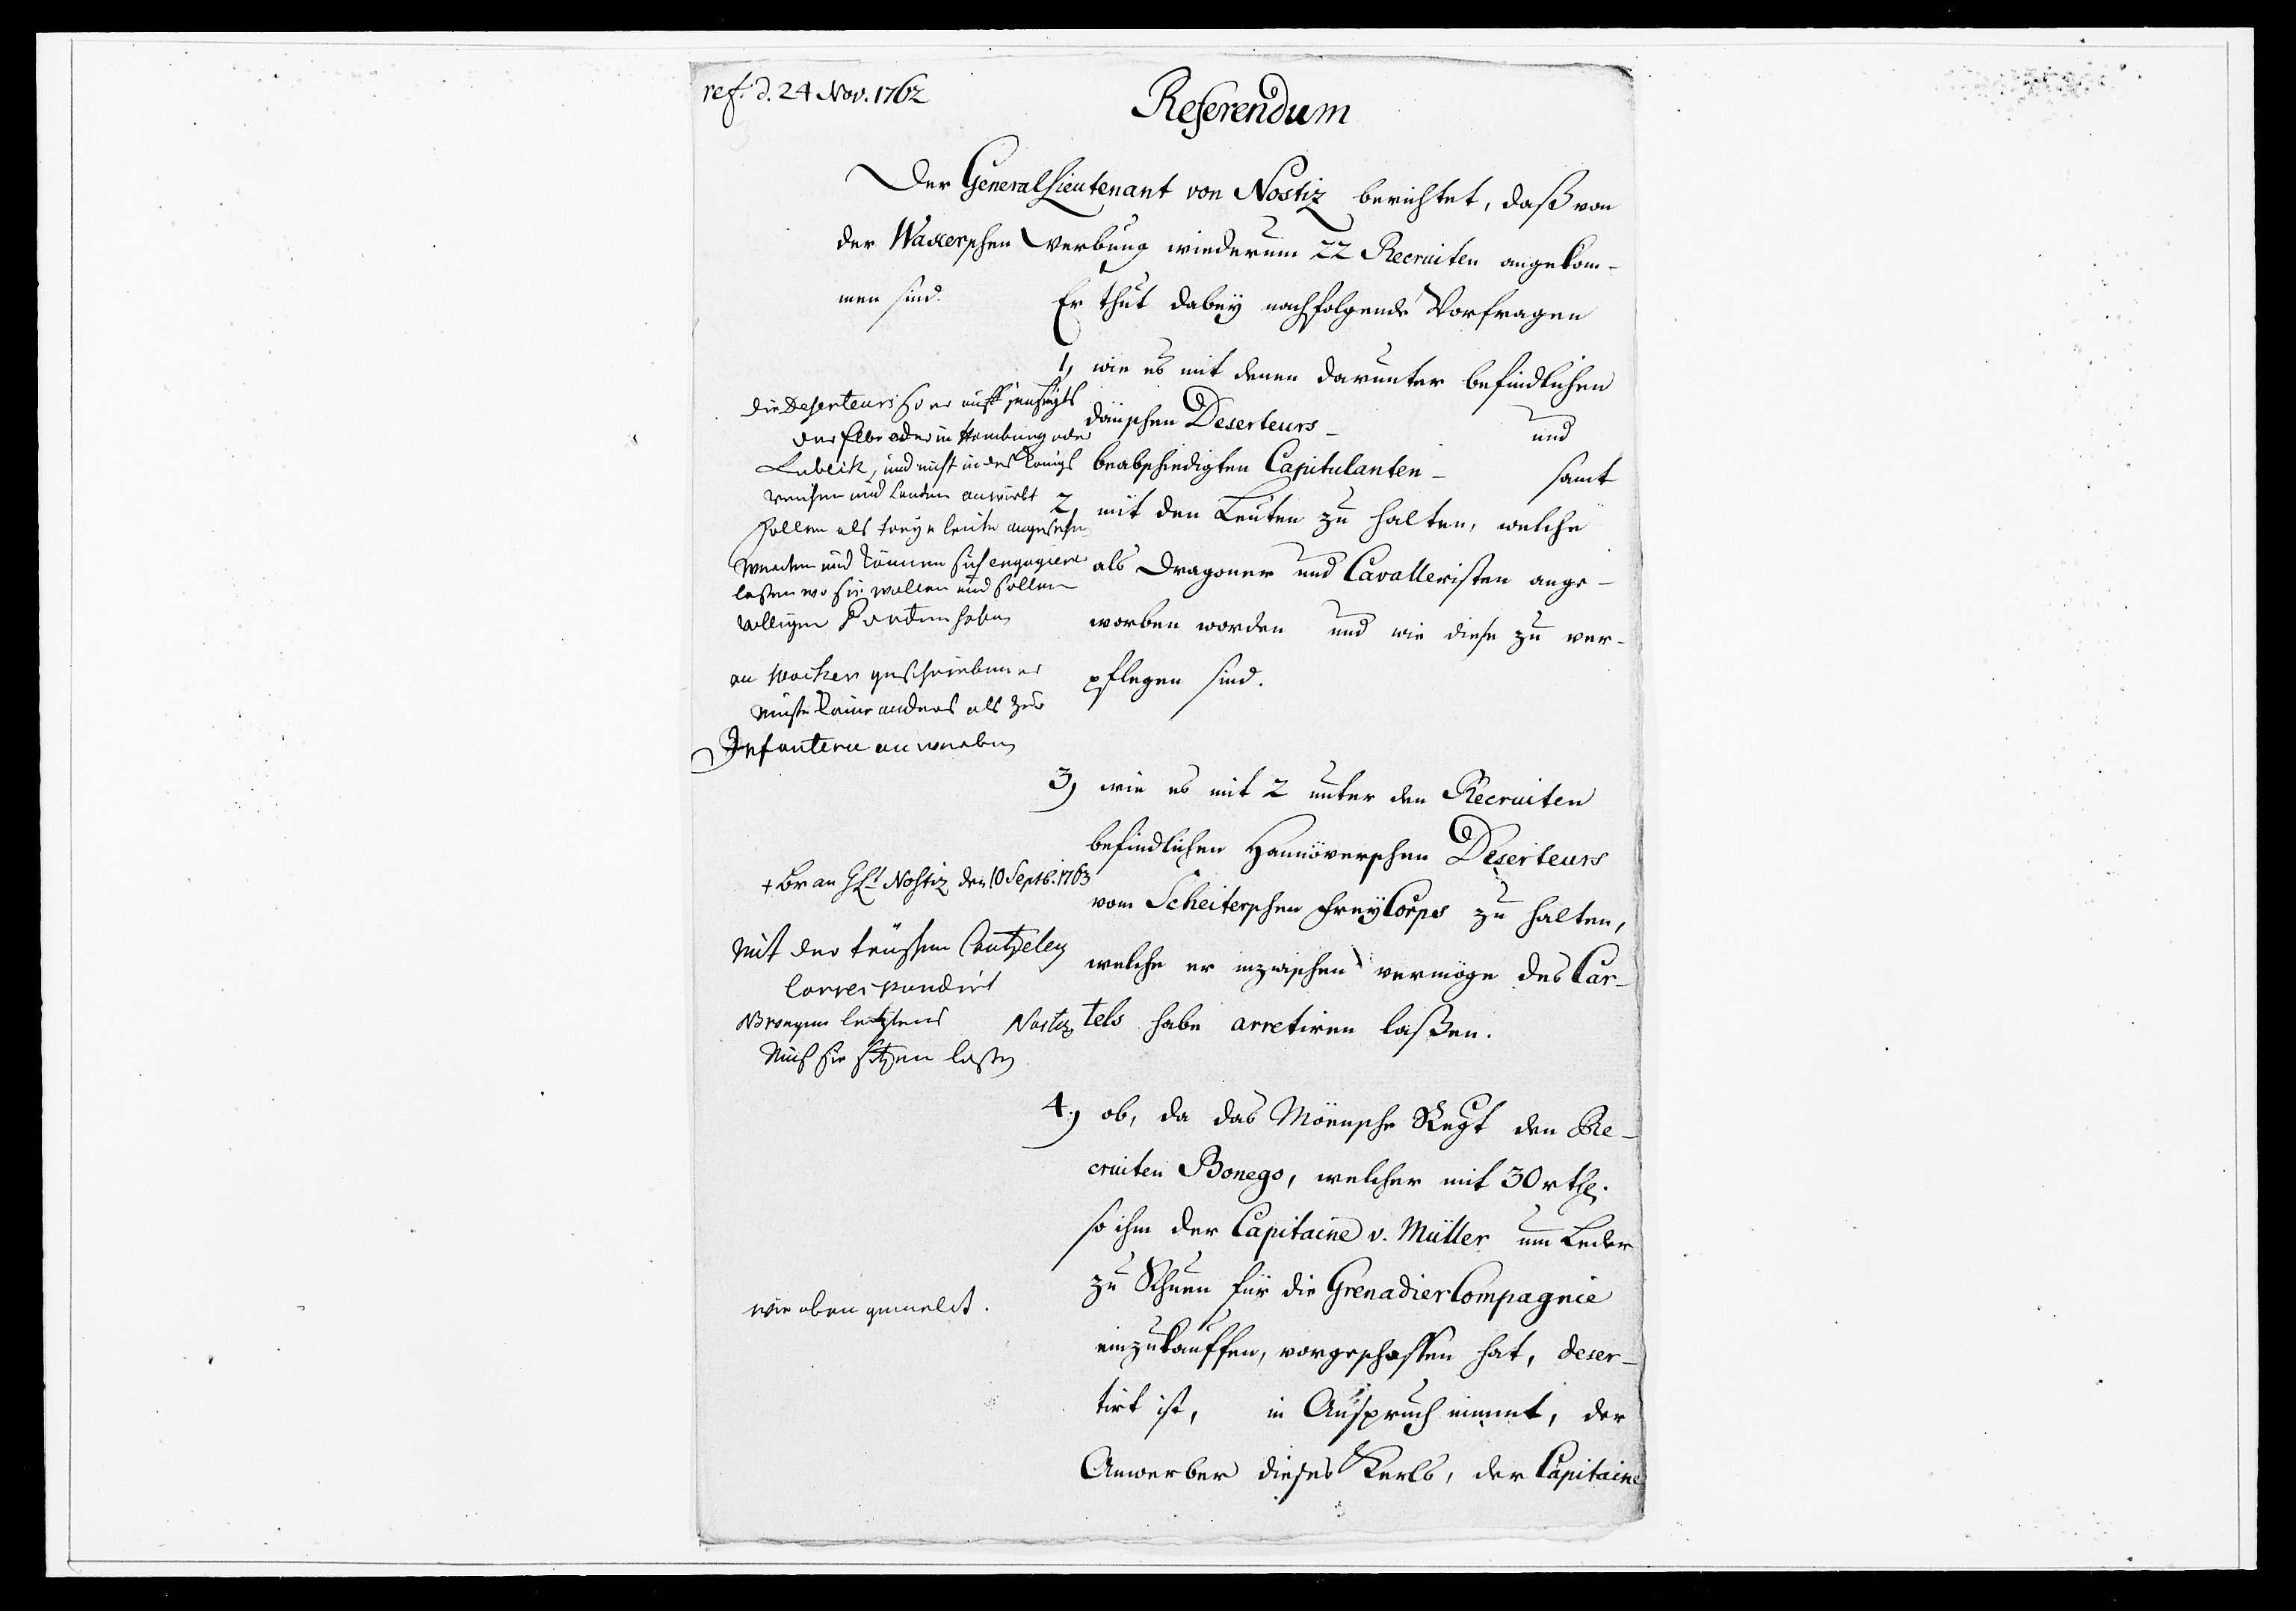 ref. d. 24 Nov. 1762
Referendum
Der GeneralLieutenant von Nostiz berichtet, daß von
der Wackerschen Werbung wiederum 22 Recruiten angekom-
men sind. Er thut dabeÿ nachfolgende Vorfragen
1, wie es mit denen darunter befindlichen
dänschen Deserteurs - und
beabschiedigten Capitulanten - samt
2, mit den Leuten zu halten, welche
als Dragoner und Cavalleristen ange-
worben worden und wie diese zu ver-
pflegen sind.
die Deserteurs so er auff jenseits
der Elbe oder in Hamburg oder
Lubeck, und nicht in des Königs
Reichen und Landen anwirbt
sollen als freye leute angesehen
werden und können sich engagiere
laßen wo sie wollen und sollen
völligen Pardon haben
an Wacker geschrieben er
müste keine anders als zur
Infanterie anwerben
3) wie es mit 2 unter den Recruiten
befindlichen Hannöverschen Deserteurs
vom Scheiterschen FreÿCorps zu halten,
welche er inzwischen vermöge des Car-
tels habe arretiren laßen.
+ Br an GLt Nostiz den 10 Septb. 1763
Mit der teutschen Cantzeley
correspondirt
NB wegen letztens Nostiz
Muß sie sitzen laßen
4.) ob, da das Möensche Regt den Re-
cruiten Bonego, welcher mit 30 rthl.
so ihm der Capitaine v. Müller um Leder
zu Schuen für die GrenadierCompagnie
einzukauffen, vorgeschossen hat, deser-
tirt ist, in Anspruch nimmt, der
Anwerber dieses Kerls, der Capitaine
wie oben gemeldt.